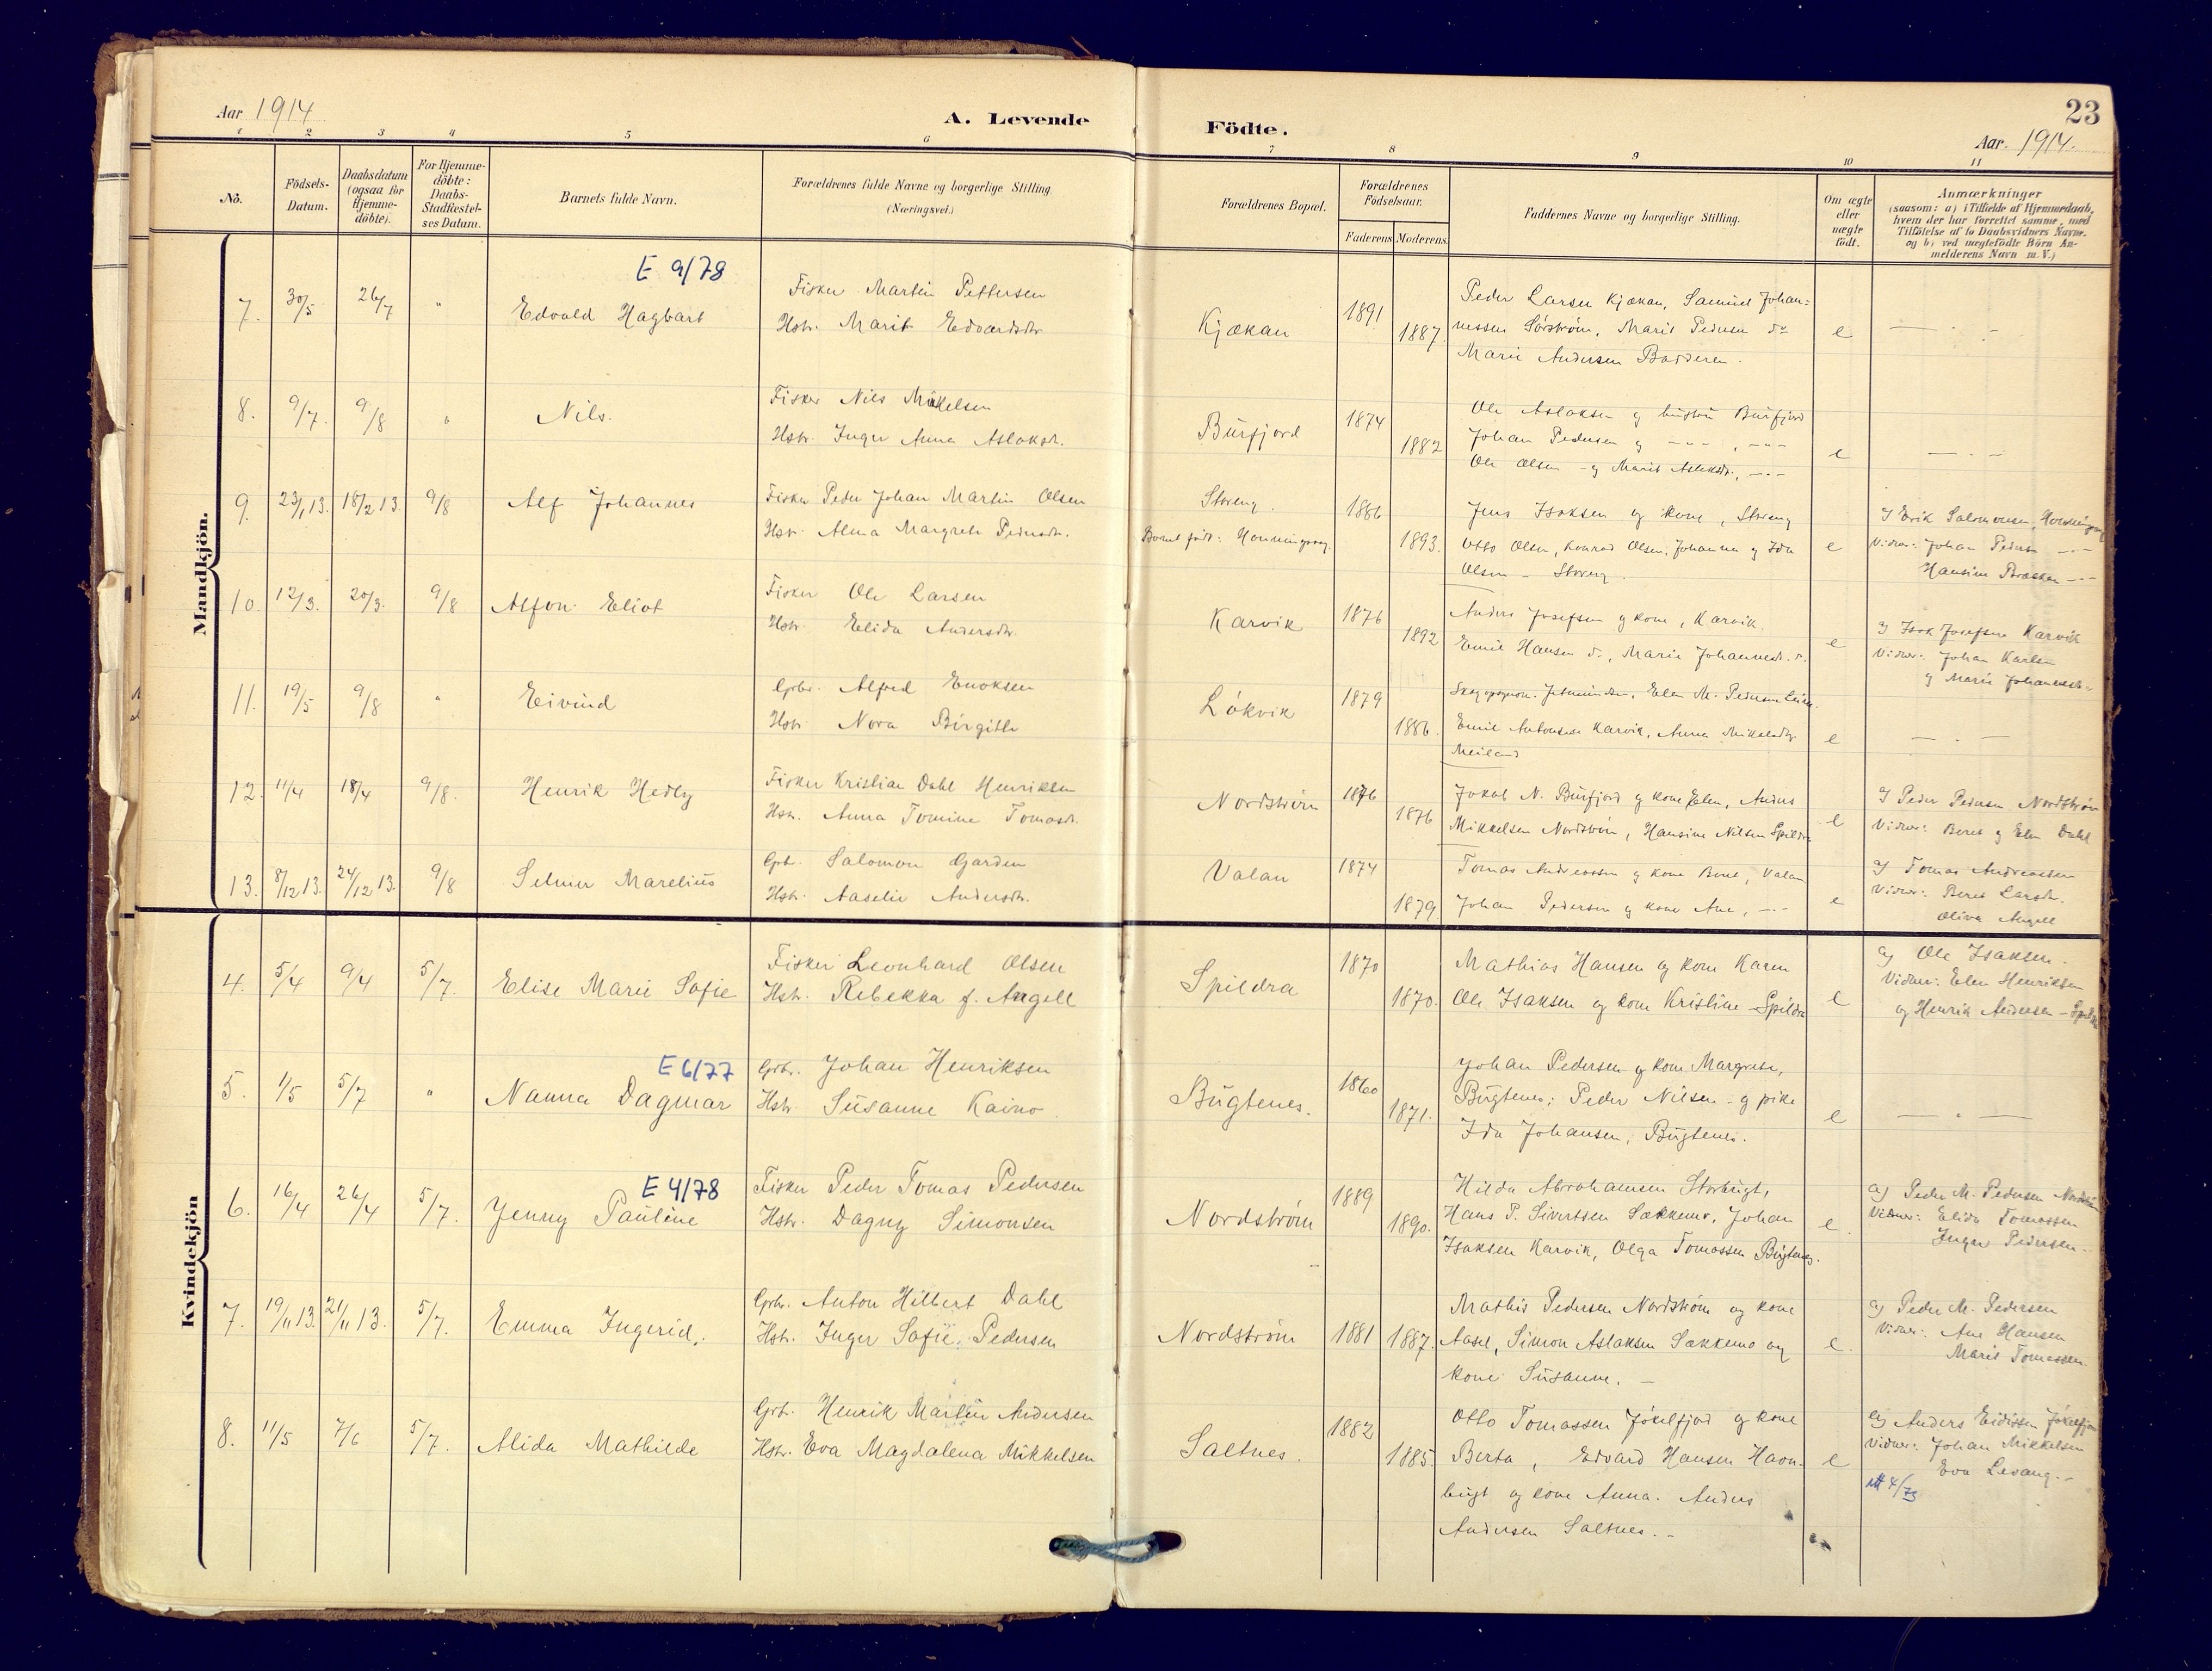 23
Aar 1914
A. Levende
Födte.
Aar. 1914.
1 2 3 4 5 6 7 8 9 10 11
No.
Födsels-
Datum.
Daabsdatum
(ogsaa for
Hjemme-
döbte).
For Hjemme-
döbte:
Daabs-
Stadfæstel-
ses Datum.
Barnets fulde Navn.
Forældrenes fulde Navne og borgerlige Stilling
(Næringsvei.)
Forældrenes Bopæl.
Forældrenes
Födselsaar.
Faderens Moderens.
Faddernes Navne og borgerlige Stilling.
Om ægte
eller
uægte
født.
Anmærkninger
(saasom: a) i Tilfælde af Hjemmedaab,
hvem der har forrettet samme, med
Tilföielse af to Daabsvidners Navne.
og b) ved uægtefödte Börn An-
melderens Navn m. V.)
Mandkjön.
E 9/78
7. 30/5 26/7 "
Edvald Hagbart
Fisker Martin Pettersen
Hstr. Marit Edvardsdtr.
Kjækan
1891
1887.
Peder Larsen Kjækan, Samuel Johan=
nessen Sörström, Marit Pedersen do
Marie Andersen Badderen.
e
8. 9/7. 9/8 "
Nils.
Fisker Nils Mikkelsen
Hstr. Inger Anna Aslaksdtr.
Burfjord
1874
1882
Ole Aslaksen og hustru Burfjord
Johan Pedersen og -"- , -"-
Ole Olsen og Marit Aslaksdtr., -"-
e
9. 23/1 13. 18/2 13 9/8
Alf Johannes
Fisker Peder Johan Martin Olsen
Hstr. Alma Margrete Pedersdtr.
Storeng.
Barnet født: Honningsvag.
1886
1893.
Jens Isaksen og kone, Storeng
Otto Olsen, Konrad Olsen, Johanna og Ida
Olsen - Storeng.
e
a) Erik Salomonsen, Honningsvag
Vidner: Johan Pedersen -"-
Hansine -"-
10. 12/3. 20/3. 9/8
Alfon Eliot
Fisker Ole Larsen
Hstr. Elida Andersdtr.
Karvik
1876
1892
Anders Josefsen og kone, Karvik.
Emil Hansen do, Marie Johannesd. do.
e
a) Isak Josefsen Karvik
Vidner: Johan Karlsen
og Marie Johannesdtr.
11. 19/5 9/8 "
Eivind
Gbr. Alfred Enoksen
Hstr. Nora Birgitte
Lökvik
1879
1886.
Elen M. Pedersen
Emil Antonsen Karvik, Anna Mikkelsdtr.
Meiland
e
12. 11/4 18/4 9/8.
Henrik Hedly
Fisker Kristian Dahl Henriksen
Hstr. Anna Tomine Tomasdtr.
Nordström
1876
1876
Jakob N. Burfjord og kone Elen, Anders
Mikkelsen Nordström, Hansine Nilsen Spildra
e
a) Peder Pedersen Nordström
Vidner: Beret og Elen Dahl
13. 8/12 13. 24/12 13. 9/8
Selmer Marelius
Gbr. Salomon Garden
Hstr. Aaselie Andersdtr.
Valan
1874
1879
Tomas Andreassen og kone Beret, Valan
Johan Pedersen og kone Ane, -"-
e
a) Tomas Andreassen
Vidner: Beret Larsdtr.
Oliva Angell
Kvindekjön
4. 5/4 9/4 5/7.
Elise Marie Sofie
Fisker Leonhard Olsen
Hstr. Rebekka f. Angell
Spildra
1870
1870.
Mathias Hansen og kone Karen
Ole Isaksen og kone Kristine - Spildra
e
a) Ole Isaksen.
Vidner: Elen Henriksen
og Henrik Andersen - Spildra
E 6/77
5. 1/5 5/7 "
Nanna Dagmar
Gbr. Johan Henriksen
Hstr. Susanne Kaino.
Bugtenes.
1860
1871.
Johan Pedersen og kone Margrete,
Bugtenes; Peder Nilsen - og pike
Ida Johansen, Bugtenes.
e
E 4/78
6. 16/4 26/4 5/7.
Jenny Pauline
Fisker Peder Tomas Pedersen
Hstr. Dagny Simonsen
Nordström
1889
1890.
Hilda Abrahamsen Storbugt,
Hans P. Sivertsen Sækkemo, Johan
Isaksen Karvik, Olga Tomassen Bugtenes.
e.
a) Peder M. Pedersen Nordström
Vidner: Elida Tomassen
Inger Pedersen.
7. 19/11 13. 21/11 13 5/7.
Emma Ingerid.
Gbr. Anton Hilbert Dahl
Hstr. Inger Sofie Pedersen
Nordström
1881 1887.
Mathis Pedersen Nordström og kone
Aasel, Simon Aslaksen Sækkemo og
kone Susanne. -
e.
a) Peder M. Pedersen
Vidner: Ane Hansen
Marit Tomassen.
8. 11/5 7/6 5/7.
Alida Mathilde
Gbr. Henrik Martin Andersen
Hstr. Eva Magdalena Mikkelsen
Saltnes.
1882
1885.
Otto Tomassen Jökelfjord og kone
Berta, Edvard Hansen Havn-
bugt og kone Anna. Anders
Andersen Saltnes. -
e
a) Anders Eidissen Jökelfjord
Vidner: Johan Mikkelsen
Eva Levang. -
att 4/73